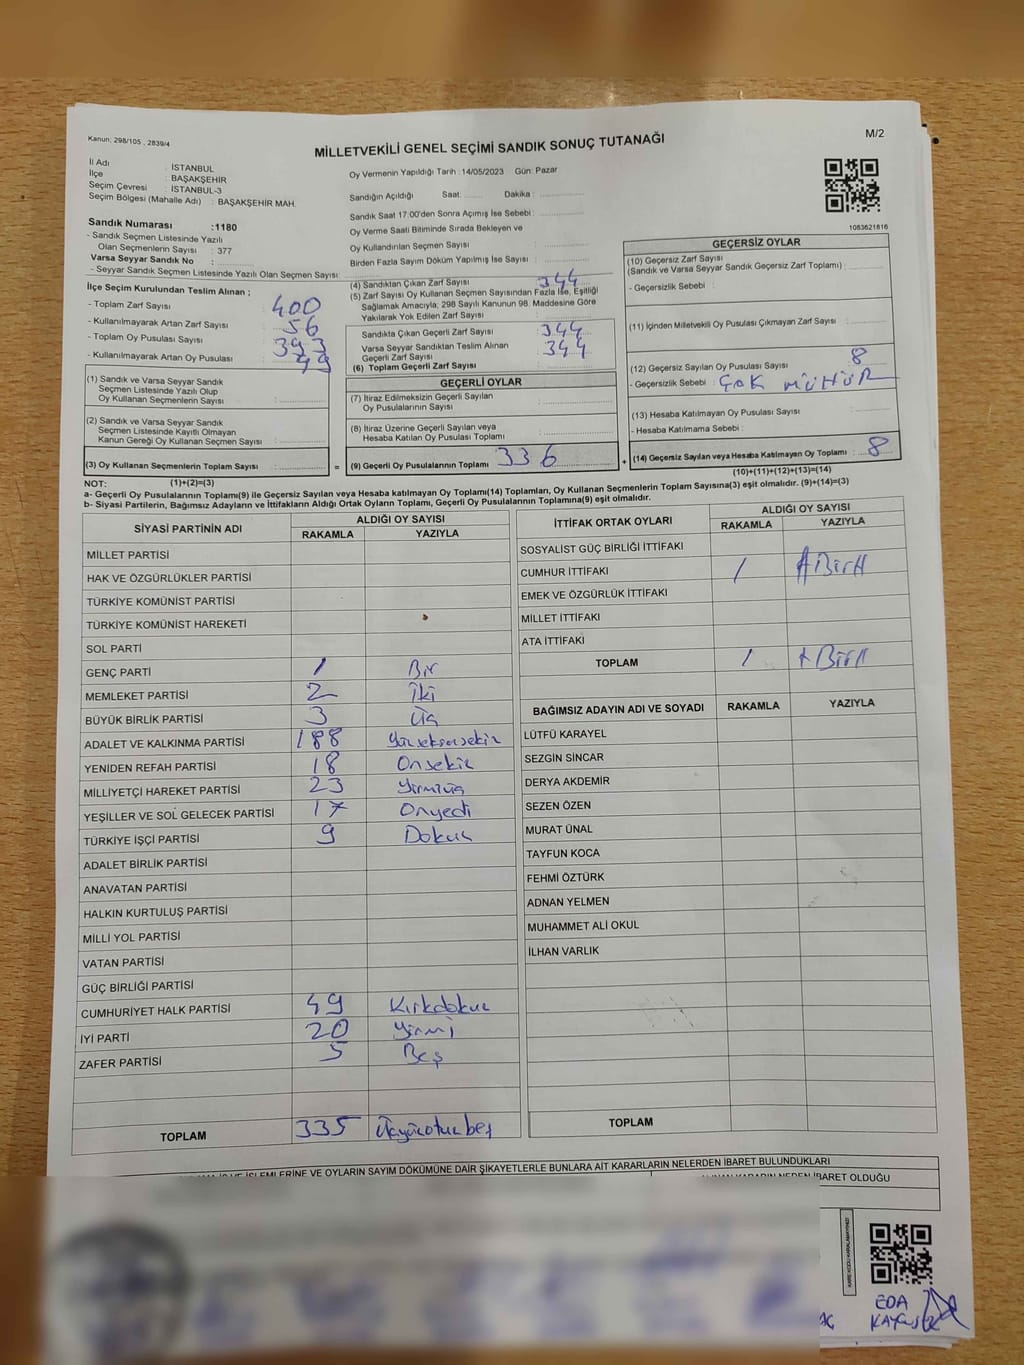 Kanun: 298/105 , 2839/4
M/2
MİLLETVEKİLİ GENEL SEÇİMİ SANDIK SONUÇ TUTANAĞI
İl Adı : İSTANBUL
İlçe : BAŞAKŞEHİR
Seçim Çevresi : İSTANBUL-3
Seçim Bölgesi (Mahalle Adı) : BAŞAKŞEHİR MAH.
Sandık Numarası :1180
- Sandık Seçmen Listesinde Yazılı
Olan Seçmenlerin Sayısı : 377
Varsa Seyyar Sandık No :
- Seyyar Sandık Seçmen Listesinde Yazılı Olan Seçmen Sayısı:
Oy Vermenin Yapıldığı Tarih :14/05/2023 Gün: Pazar
Sandığın Açıldığı Saat: Dakika :
Sandık Saat 17:00'den Sonra Açımış İse Sebebi :
Oy Verme Saati Bitiminde Sırada Bekleyen ve
Oy Kullandırılan Seçmen Sayısı :
Birden Fazla Sayım Döküm Yapılmış İse Sayısı :
1083621816
İlçe Seçim Kurulundan Teslim Alınan ;
- Toplam Zarf Sayısı : 400
- Kullanılmayarak Artan Zarf Sayısı : 56
- Toplam Oy Pusulası Sayısı : 393
- Kullanılmayarak Artan Oy Pusulası : 49
(1) Sandık ve Varsa Seyyar Sandık
Seçmen Listesinde Yazılı Olup
Oy Kullanan Seçmenlerin Sayısı :
(2) Sandık ve Varsa Seyyar Sandık
Seçmen Listesinde Kayıtlı Olmayan
Kanun Gereği Oy Kullanan Seçmen Sayısı :
(3) Oy Kullanan Seçmenlerin Toplam Sayısı :
(4) Sandıktan Çıkan Zarf Sayısı : 344
(5) Zarf Sayısı Oy Kullanan Seçmen Sayısından Fazla İse, Eşitliği
Sağlamak Amacıyla, 298 Sayılı Kanunun 98. Maddesine Göre
Yakılarak Yok Edilen Zarf Sayısı :
Sandıkta Çıkan Geçerli Zarf Sayısı : 344
Varsa Seyyar Sandıktan Teslim Alınan
Geçerli Zarf Sayısı : 344
(6) Toplam Geçerli Zarf Sayısı :
GEÇERLİ OYLAR
(7) İtiraz Edilmeksizin Geçerli Sayılan
Oy Pusulalarının Sayısı :
(8) İtiraz Üzerine Geçerli Sayılan veya
Hesaba Katılan Oy Pusulası Toplamı :
= (9) Geçerli Oy Pusulalarının Toplamı : 336
GEÇERSİZ OYLAR
(10) Geçersiz Zarf Sayısı
(Sandık ve Varsa Seyyar Sandık Geçersiz Zarf Toplamı) :
- Geçersizlik Sebebi :
(11) İçinden Milletvekili Oy Pusulası Çıkmayan Zarf Sayısı :
(12) Geçersiz Sayılan Oy Pusulası Sayısı : 8
- Geçersizlik Sebebi : ÇOK MÜHÜR
(13) Hesaba Katılmayan Oy Pusulası Sayısı :
- Hesaba Katılmama Sebebi :
+ (14) Geçersiz Sayılan veya Hesaba Katılmayan Oy Toplamı : 8
(10)+(11)+(12)+(13)=(14)
NOT: (1)+(2)=(3)
a- Geçerli Oy Pusulalarının Toplamı(9) ile Geçersiz Sayılan veya Hesaba katılmayan Oy Toplamı(14) Toplamları, Oy Kullanan Seçmenlerin Toplam Sayısına(3) eşit olmalıdır. (9)+(14)=(3)
b- Siyasi Partilerin, Bağımsız Adayların ve İttifakların Aldığı Ortak Oyların Toplamı, Geçerli Oy Pusulalarının Toplamına(9) eşit olmalıdır.
SİYASİ PARTİNİN ADI ALDIĞI OY SAYISI
RAKAMLA YAZIYLA
MİLLET PARTİSİ
HAK VE ÖZGÜRLÜKLER PARTİSİ
TÜRKİYE KOMÜNİST PARTİSİ
TÜRKİYE KOMÜNİST HAREKETİ
SOL PARTİ
GENÇ PARTİ 1 Bir
MEMLEKET PARTİSİ 2 İki
BÜYÜK BİRLİK PARTİSİ 3 Üç
ADALET VE KALKINMA PARTİSİ 188 Yüzseksensekiz
YENİDEN REFAH PARTİSİ 18 Onsekiz
MİLLİYETÇİ HAREKET PARTİSİ 23 Yirmiüç
YEŞİLLER VE SOL GELECEK PARTİSİ 17 Onyedi
TÜRKİYE İŞÇİ PARTİSİ 9 Dokuz
ADALET BİRLİK PARTİSİ
ANAVATAN PARTİSİ
HALKIN KURTULUŞ PARTİSİ
MİLLİ YOL PARTİSİ
VATAN PARTİSİ
GÜÇ BİRLİĞİ PARTİSİ
CUMHURİYET HALK PARTİSİ 49 Kırkdokuz
İYİ PARTİ 20 Yirmi
ZAFER PARTİSİ 5 Beş
TOPLAM 335 Üçyüzotuzbeş
İTTİFAK ORTAK OYLARI ALDIĞI OY SAYISI
RAKAMLA YAZIYLA
SOSYALİST GÜÇ BİRLİĞİ İTTİFAKI
CUMHUR İTTİFAKI 1 BİR
EMEK VE ÖZGÜRLÜK İTTİFAKI
MİLLET İTTİFAKI
ATA İTTİFAKI
TOPLAM 1 BİR
BAĞIMSIZ ADAYIN ADI VE SOYADI RAKAMLA YAZIYLA
LÜTFÜ KARAYEL
SEZGİN SİNCAR
DERYA AKDEMİR
SEZEN ÖZEN
MURAT ÜNAL
TAYFUN KOCA
FEHMİ ÖZTÜRK
ADNAN YELMEN
MUHAMMET ALİ OKUL
İLHAN VARLIK
TOPLAM
İŞLEMLERİNE VE OYLARIN SAYIM DÖKÜMÜNE DAİR ŞİKAYETLERLE BUNLARA AİT KARARLARIN NELERDEN İBARET BULUNDUKLARI
ALINAN KARARIN NEDEN İBARET OLDUĞU
KARE KODU KARALAMAYINIZ!
EDA